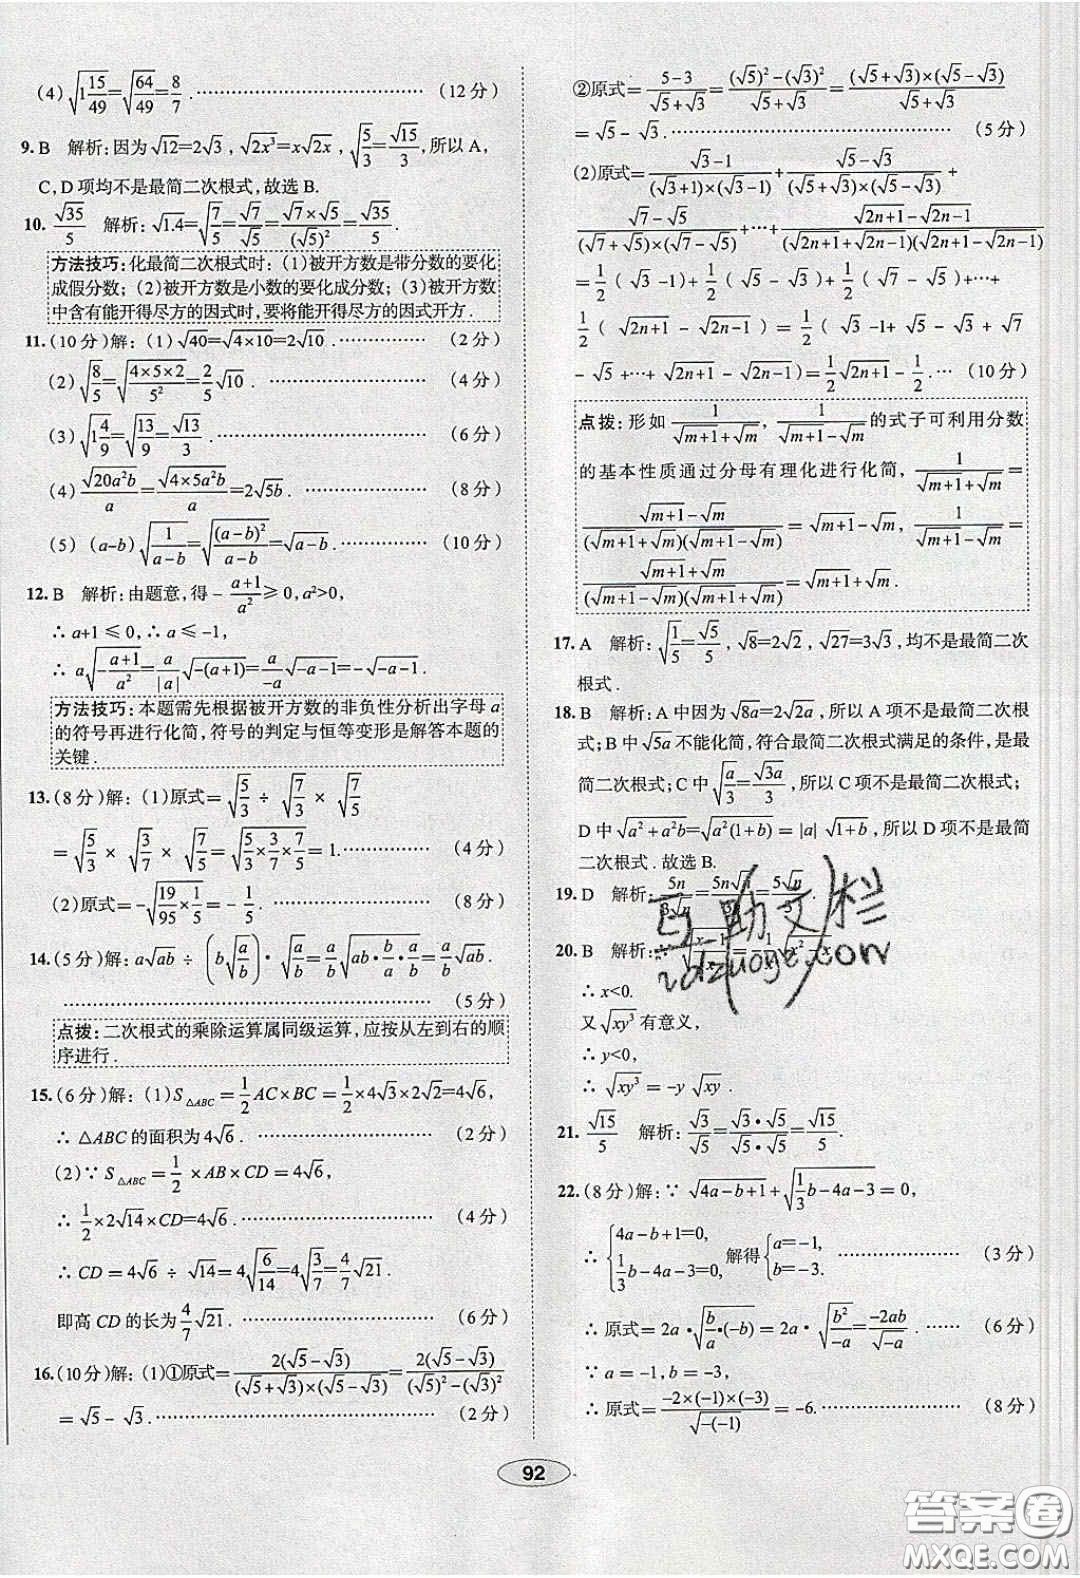 (4)√(1 15/49)=√(64/49)=8/7.……(12分)
9.B 解析:因为√12=2√3,√(2x³)=x√(2x),√(5/3)=√15/3,所以A,
C,D项均不是最简二次根式,故选B.
10.√35/5 解析:√1.4=√(7/5)=√7/√5=(√7×√5)/(√5)²=√35/5.
方法技巧:化最简二次根式时:(1)被开方数是带分数的要化
成假分数;(2)被开方数是小数的要化成分数;(3)被开方数
中含有能开得尽方的因式时,要将能开得尽方的因式开方.
11.(10分)解:(1)√40=√(4×10)=2√10.……(2分)
(2)√(8/5)=√((4×5×2)/5²)=2/5√10.……(4分)
(3)√(1 4/9)=√(13/9)=√13/3.……(6分)
(4)√(20a²b)/a=√(4×5a²b)/a=2√(5b).……(8分)
(5)(a-b)√(1/(a-b))=√((a-b)²/(a-b))=√(a-b).……(10分)
12.B 解析:由题意,得-(a+1)/a²≥0,a²>0,
∴a+1≤0,∴a≤-1,
∴a√(-(a+1)/a²)=a/|a|√(-(a+1))=a/(-a)√(-a-1)=-√(-a-1).
方法技巧:本题需先根据被开方数的非负性分析出字母a
的符号再进行化简,符号的判定与恒等变形是解答本题的
关键.
13.(8分)解:(1)原式=√(5/3)÷√(7/3)×√(7/5)
=√(5/3)×√(3/7)×√(7/5)=√(5/3×3/7×7/5)=1.……(4分)
(2)原式=-√(19/95×1/5)=-1/5.……(8分)
14.(5分)解:a√(ab)÷(b√(a/b))·√(a/b)=a/b√(ab·b/a·a/b)=a/b√(ab).
……(5分)
点拨:二次根式的乘除运算属同级运算,应按从左到右的顺
序进行.
15.(6分)解:(1)S△ABC=1/2AC×BC=1/2×4√3×2√2=4√6,
∴△ABC的面积为4√6.……(2分)
(2)∵S△ABC=1/2×AB×CD=4√6,
∴1/2×2√14×CD=4√6.……(4分)
∴CD=4√6÷√14=4√(6/14)=4√(3/7)=4/7√21.
即高CD的长为4/7√21.……(6分)
16.(10分)解:(1)①原式=2(√5-√3)/((√5+√3)×(√5-√3))=2(√5-√3)/((√5)²-(√3)²)
=√5-√3.……(2分)
②原式=(5-3)/(√5+√3)=((√5)²-(√3)²)/(√5+√3)=((√5+√3)×(√5-√3))/(√5+√3)
=√5-√3.……(5分)
(2)原式=(√3-1)/((√3+1)×(√3-1))+(√5-√3)/((√5+√3)×(√5-√3))+
(√7-√5)/((√7+√5)×(√7-√5))+…+(√(2n+1)-√(2n-1))/((√(2n+1)+√(2n-1))(√(2n+1)-√(2n-1)))
=1/2(√3-1)+1/2(√5-√3)+1/2(√7-√5)+…+
1/2(√(2n+1)-√(2n-1))=1/2(√3-1+√5-√3+√7
-√5+…+√(2n+1)-√(2n-1))=1/2√(2n+1)-1/2.…(10分)
点拨:形如1/(√(m+1)+√m),1/(√(m+1)-√m)的式子可利用分数
的基本性质通过分母有理化进行化简,1/(√(m+1)+√m)=
(√(m+1)-√m)/((√(m+1)+√m)(√(m+1)-√m))=√(m+1)-√m,1/(√(m+1)-√m)=
(√(m+1)+√m)/((√(m+1)-√m)(√(m+1)+√m))=√(m+1)+√m.
17.A 解析:√(1/5)=√5/5,√8=2√2,√27=3√3,均不是最简二次
根式.
18.B 解析:A中因为√(8a)=2√(2a),所以A项不是最简二次根
式;B中√(5a)不能化简,符合最简二次根式满足的条件,是最
简二次根式;C中√(a/3)=√(3a)/3,所以C项不是最简二次根式;
D中√(a²+a²b)=√(a²(1+b))=|a|√(1+b),所以D项不是最简
二次根式.故选B.
19.D 解析:5n/(3√n)=5n√n/3n=5√n/3.
20.B 解析:
∴x<0.
又√(xy³)有意义,
∴y<0,
∴√(xy³)=-y√(xy).
21.√15/5 解析:√3/√5=(√3·√5)/(√5·√5)=√15/5.
22.(8分)解:∵√(4a-b+1)+√(1/3b-4a-3)=0,
∴{4a-b+1=0, 1/3b-4a-3=0, 解得{a=-1, b=-3.……(3分)
∴原式=2a·√(b/a·(-b))=2a·√(b²/-a)=-2ab/√(-a).……(6分)
∵a=-1,b=-3,
∴原式=(-2×(-1)×(-3))/√(-(-1))=-6.……(8分)
92
答案圈
MXQE.COM